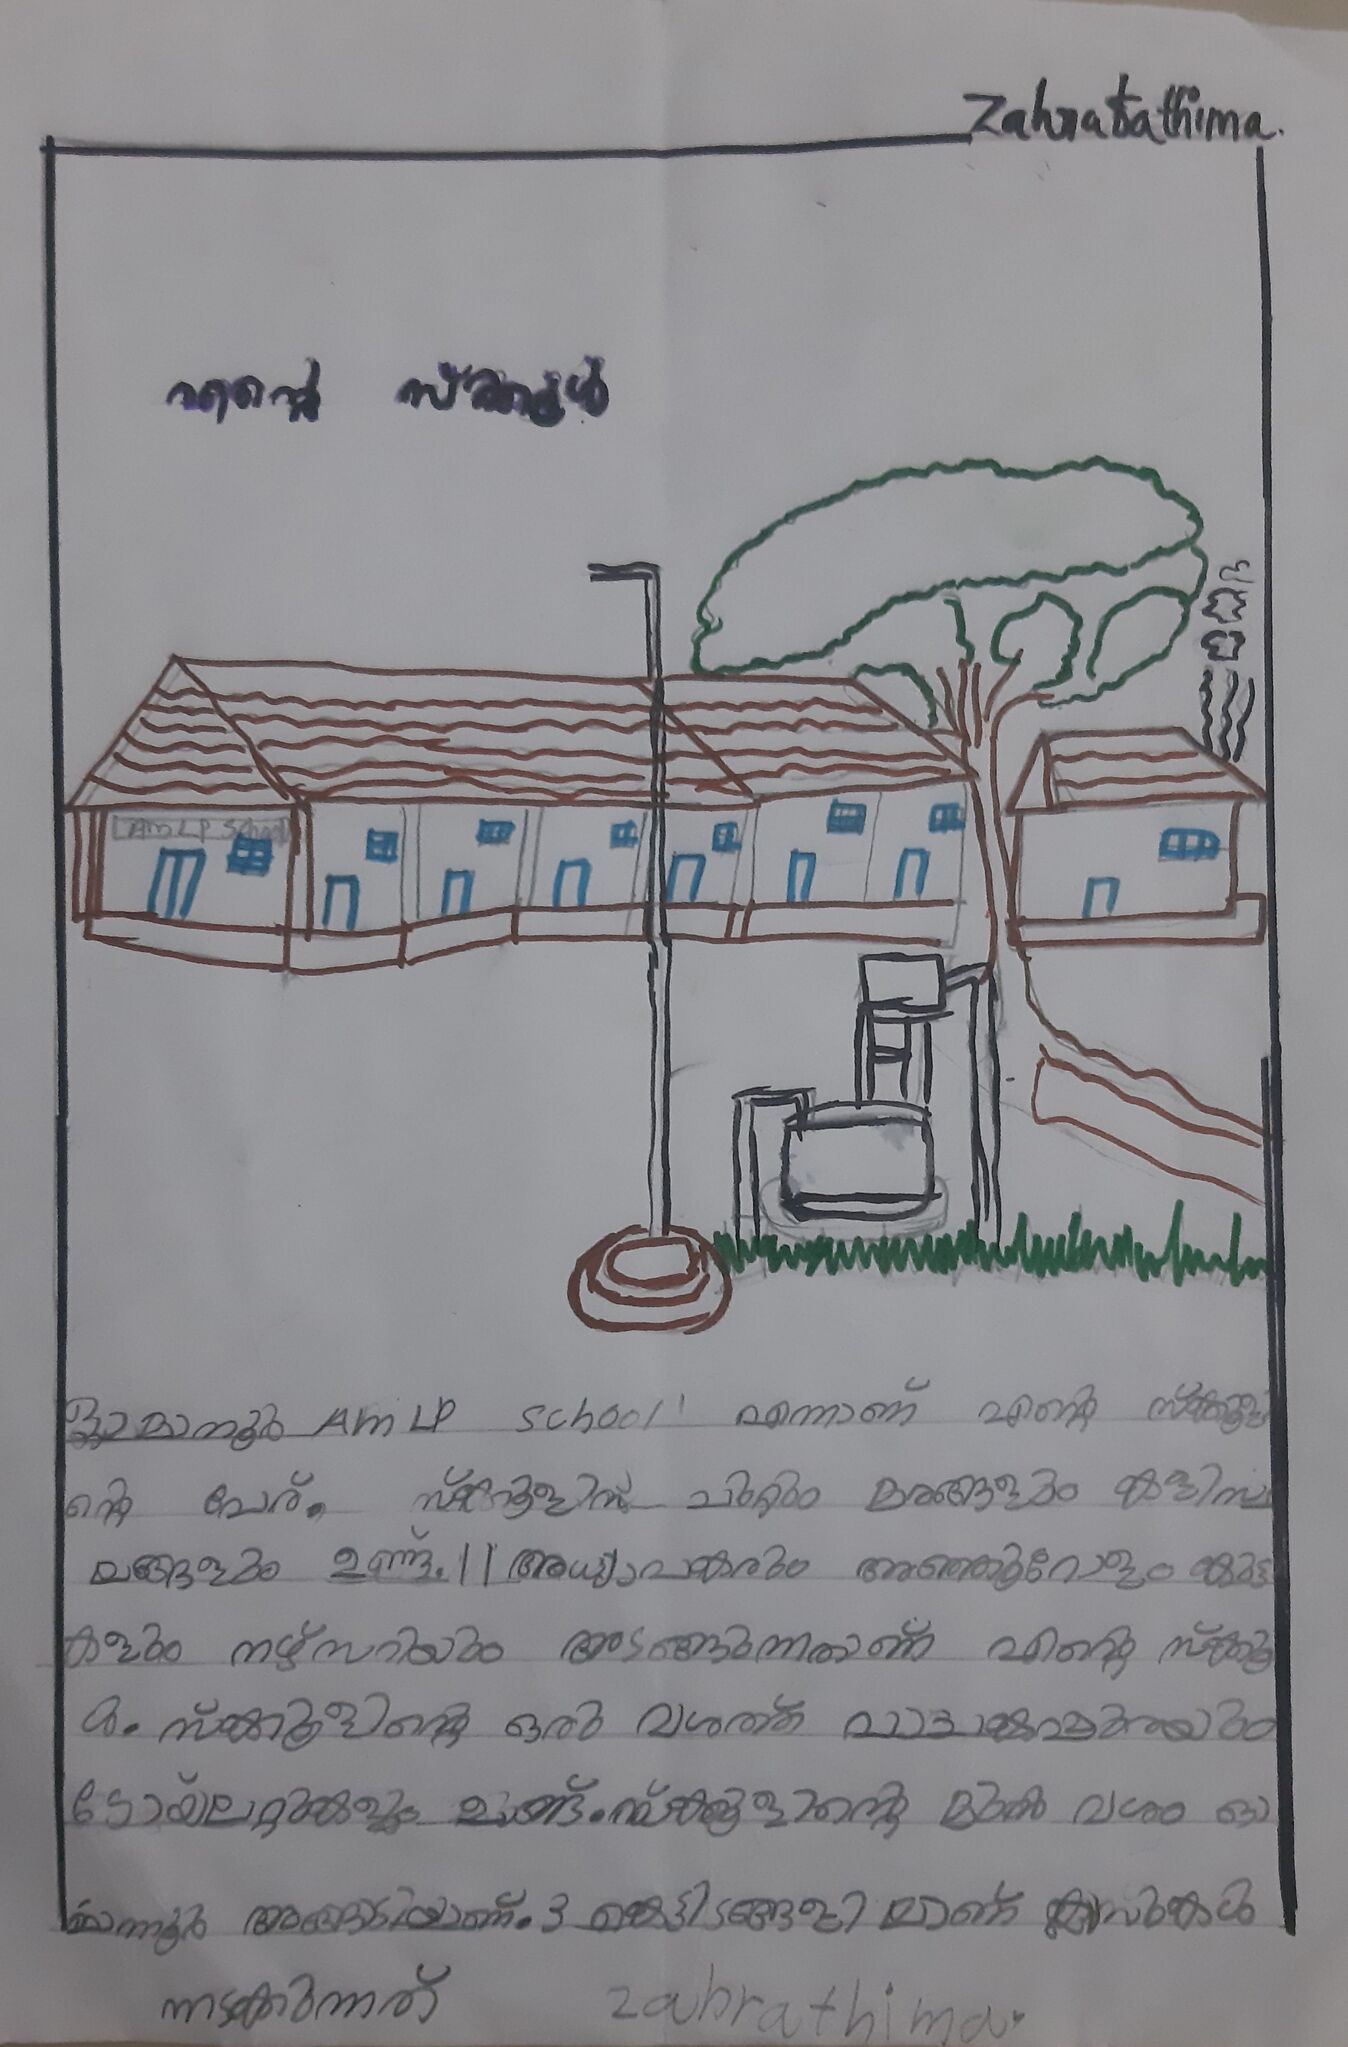 Zahrafathima.
എന്റെ സ്കൂൾ
AMLP School
ഓമാനൂർ AMLP School എന്നാണ് എന്റെ സ്കൂളി
ന്റെ പേര്. സ്കൂളിന് ചുറ്റും മരങ്ങളും കളിസ്ഥ
ലങ്ങളും ഉണ്ട്. 11 അധ്യാപകരും അഞ്ഞൂറോളം കുട്ടി
കളും നഴ്സറിയും അടങ്ങുന്നതാണ് എന്റെ സ്കൂ
ൾ. സ്കൂളിന്റെ ഒരു വശത്ത് പാചകപ്പുരയും
ടോയ്ലറ്റുകളും ഉണ്ട്. സ്കൂളിന്റെ മുൻ വശം ഓ
മാനൂർ അങ്ങാടിയാണ്. 3 കെട്ടിടങ്ങളി ലാണ് ക്ലാസുകൾ
നടക്കുന്നത് zahrathima.